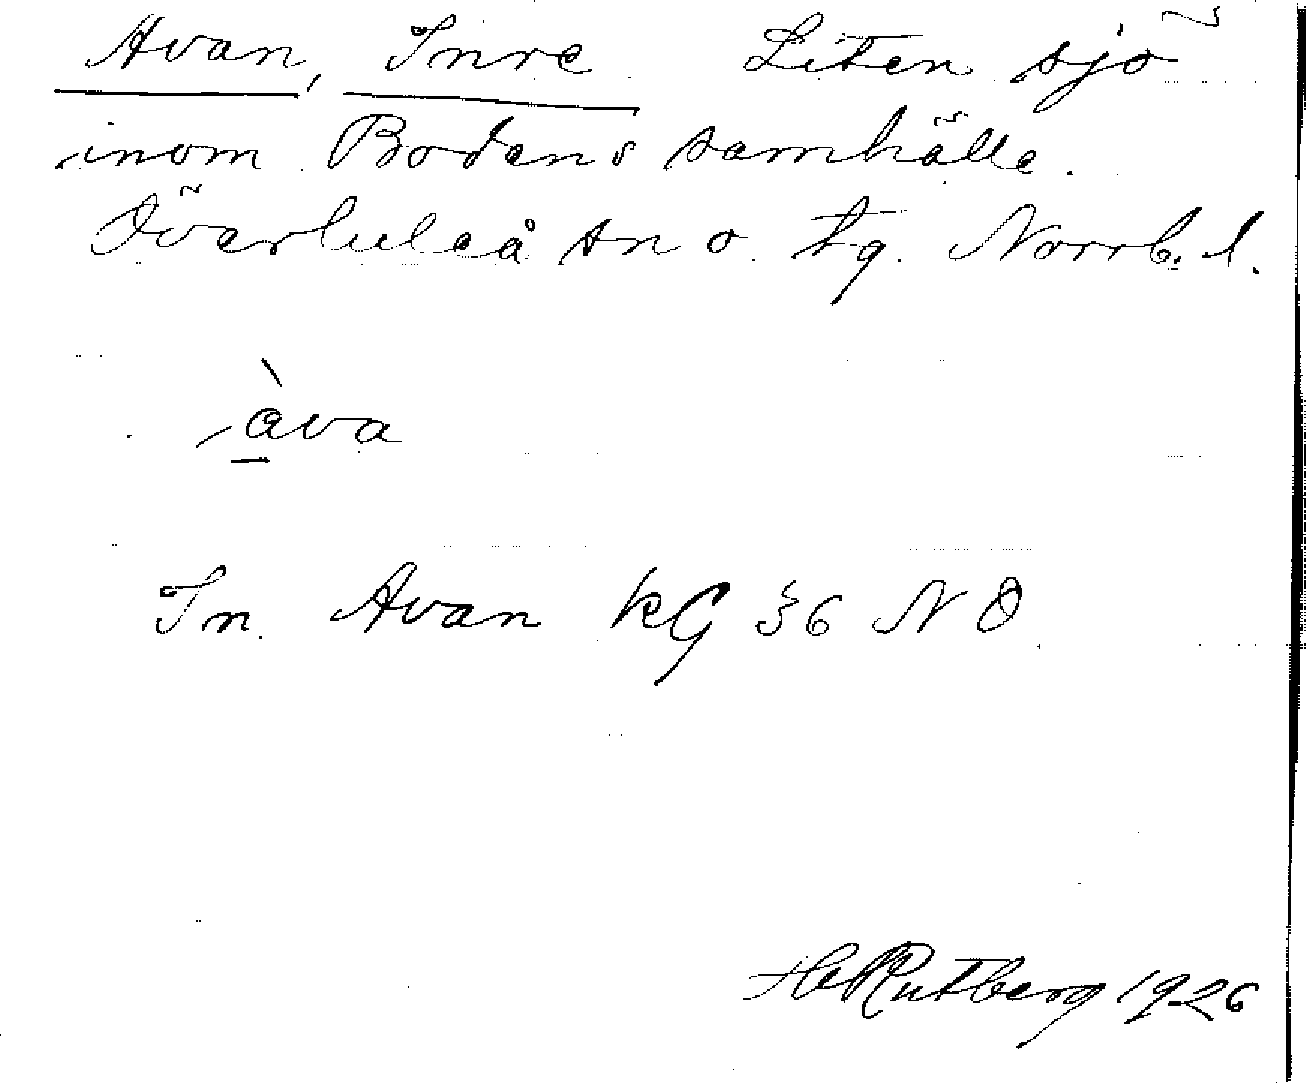 Avan, Inre. Liten sjö
inom Bodens samhälle.
Överluleå sn o. tg. Norrb. l.
àva
In. Avan KG 36 NO
H Rutberg 1926